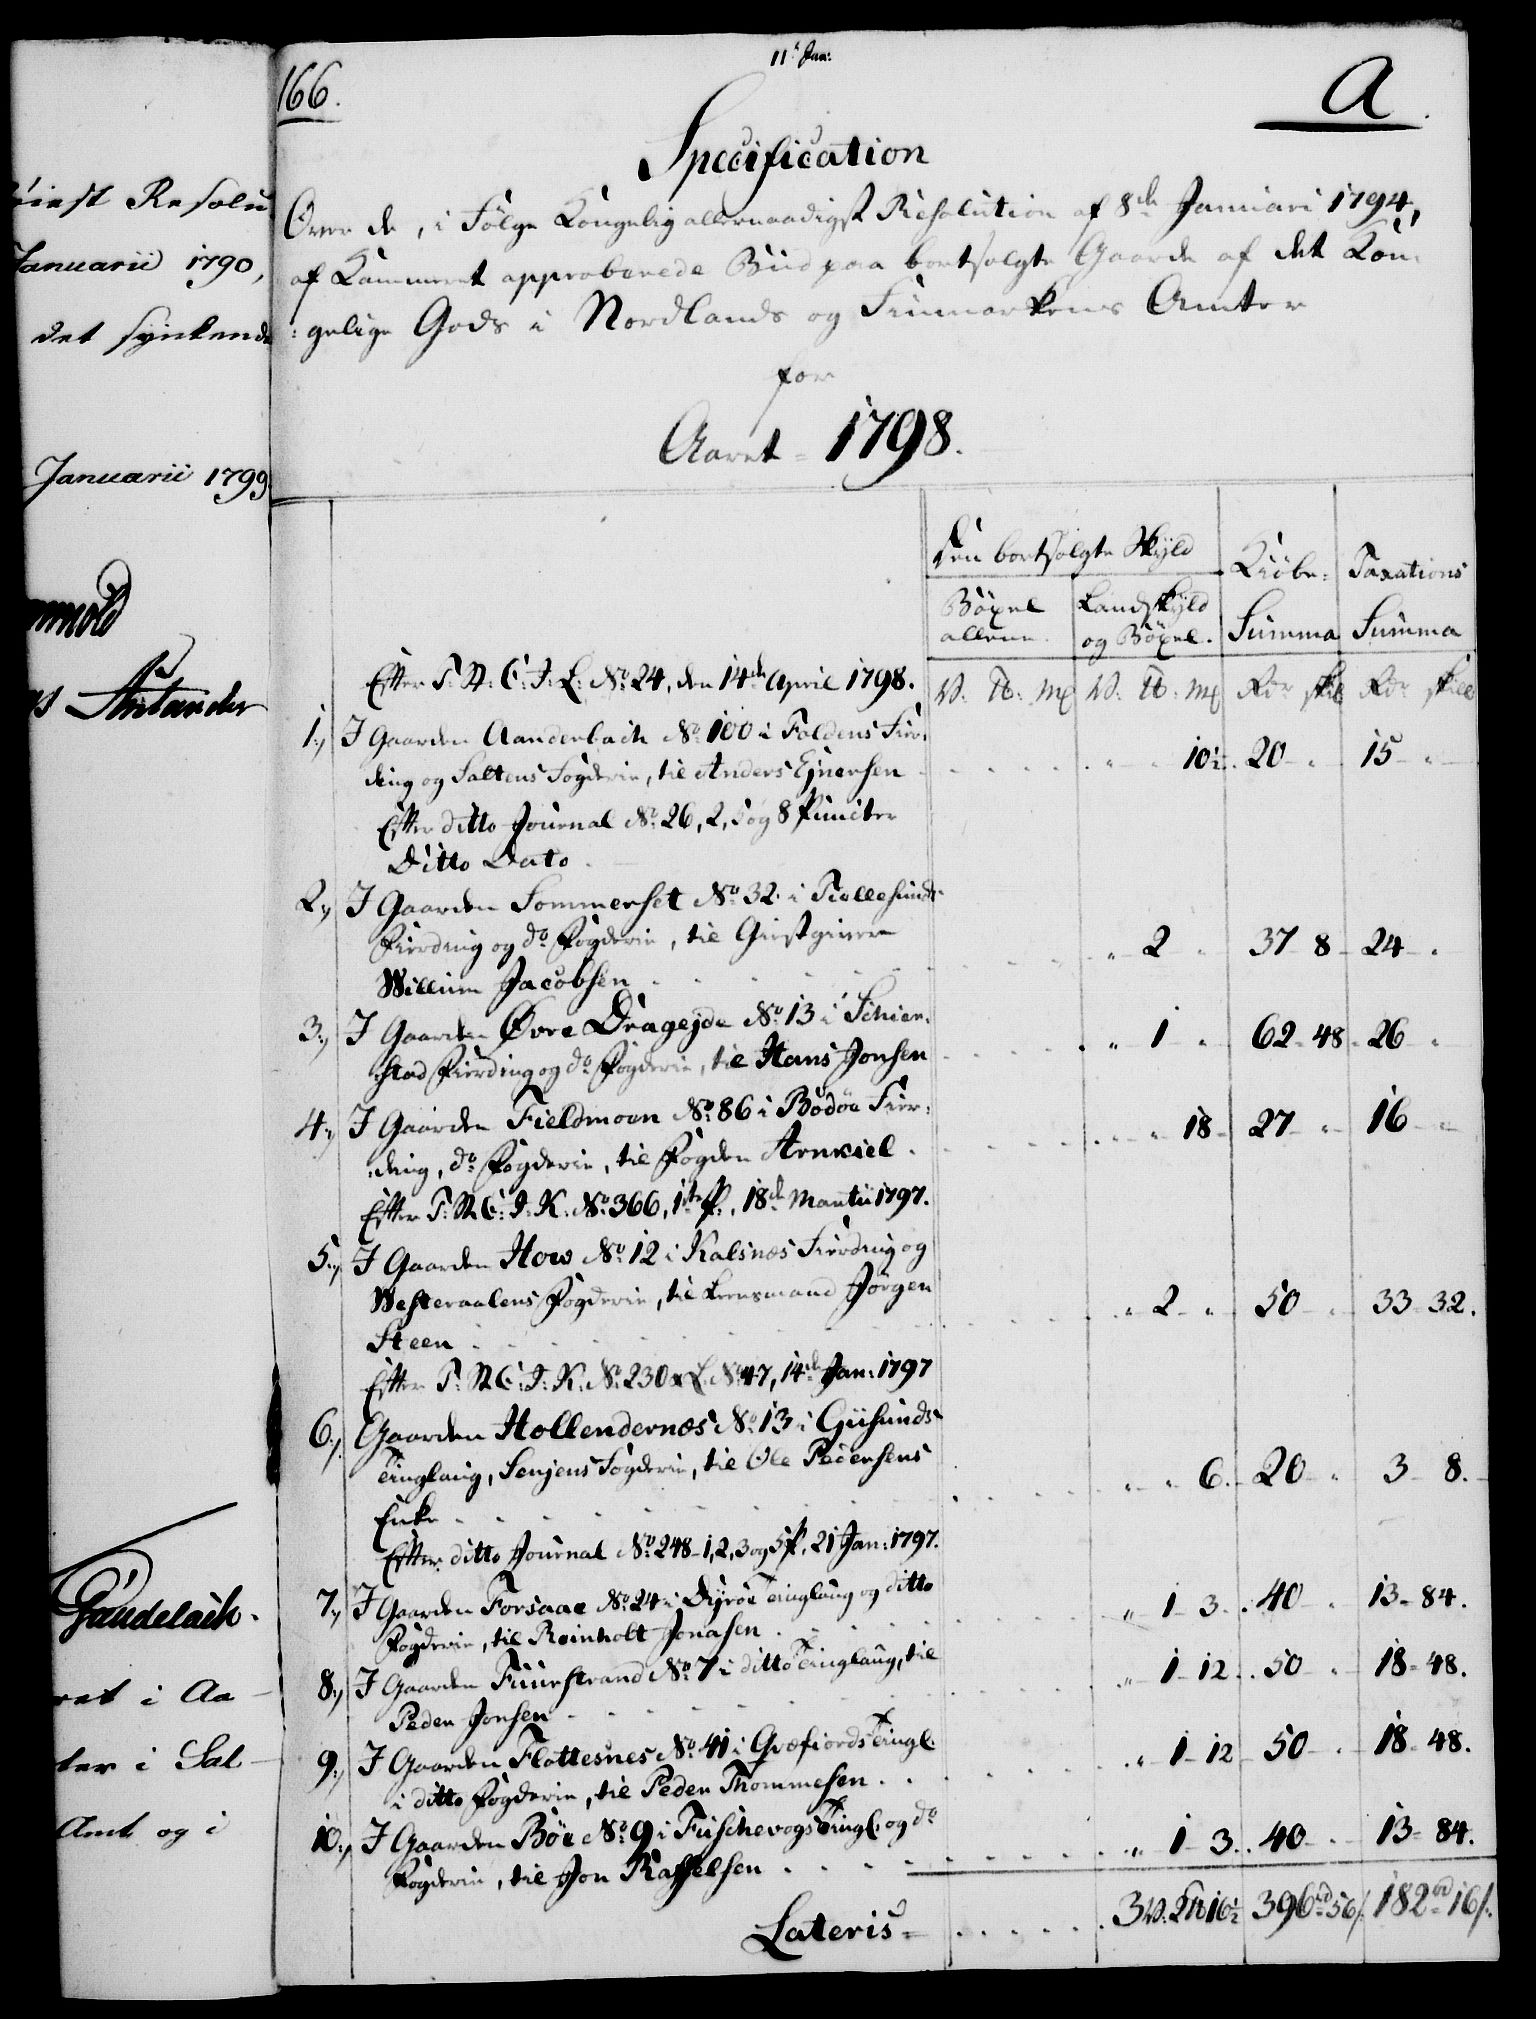 11te Jan:
166.
A.
iest Resolu
Januarii 1790,
det synkende
Januarii 1799
Gaudelach.
ret i Aa
ter i Sal
Amt og i
Specification
Over de, i Følge Kongelig allernaadigst Resolution af 8de Januari 1794,
af Kammeret approberede Bud paa bortsolgte Gaarde af det Kon-
:gelige Gods i Nordlands og Finmarkens Amter
for
Aaret = 1798.
Den bortsolgte Skyld
Kiöbe- Taxations
Böxel Landskyld
allene. og Böxel. Summa Summa
Efter T: R: C: J: L: No 24, den 14de April 1798. W. ℔: mk W. ℔: mk Rdr skil Rdr skill
1:) I Gaarden Aanderbach No 100 i Foldens Fier-
ding og Saltens Fogderie, til Anders Ejnersen " " 10½ 20 " 15 "
Efter ditto Journal No 26, 2, 5 og 8 Puncter
Ditto Dato.
2:) I Gaarden Sommerset No 32 i
Fierding og do Fogderie, til Giestgiver " 2 " 37 8 24 "
Willum Jacobsen
3:) I Gaarden Øvre Dragejde No 13 i Schier-
stad Fierding og do Fogderie, til Hans Jonsen " 1 " 62 48 26 "
4:) I Gaarden Fieldmoen No 86 i Bodöe Fier-
:ding, do Fogderie, til Fogden Arnkiel. " " 18 27 " 16 "
Efter T: R: C: J: K: No 366, 1ste P., 18de Martii 1797.
5:) I Gaarden How No 12 i Kalsnæs Fierding og
Westeraalens Fogderie, til Lensmand Jörgen " 2 " 50 " 33 32.
Steen
Efter T: R: C: J: K: No 230 & L. No 47, 14de Jan: 1797
6:) Gaarden Hollendernæs No 13 i Giisunds
Tinglaug, Senjens Fogderie, til Ole Pedersens " " 6. 20 " 3 8.
Enke
Efter ditto Journal No 248 - 1, 2, 3 og 5 P. 21 Jan: 1797.
7:) I Gaarden Forsaae No 24 i Dyröe Tinglaug og ditto
Fogderie, til Reinholt Jonasen " 1 3. 40 " 13 84.
8:) I Gaarden Fuurstrand No 7 i ditto Tinglaug, til
Peder Jonsen " 1 12. 50 " 18 48.
9:) I Gaarden Flottesnes No 41 i Græfiords Tingl.
i ditto Fogderie, til Peder Thommesen. " 1 12 50 " 18 48.
10:) I Gaarden Böe No 9 i Fuschevogs Tingl. og do
Fogderie, til Jon Raffelsen " 1 3. 40 " 13 84.
Lateris = 3 W: 2 ℔ 16½ 396 rd 56 s. 182 rd 16 s.